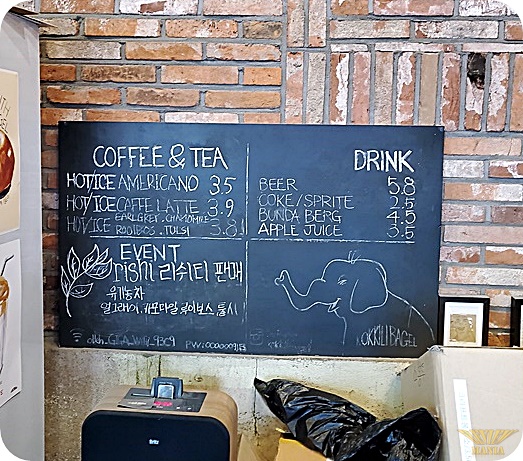 COFFEE & TEA
HOT/ICE AMERICANO 3.5
HOT/ICE CAFFE LATTE 3.9
HOT/ICE EARLGREY. CHAMOMILE
ROOIBOS. TULSI 3.8
EVENT
rishi 리쉬티 판매
유기농차
얼그레이. 캐모마일 루이보스 툴시
DRINK
BEER 5.8
COKE/SPRITE 2.5
BUNDABERG 4.5
APPLE JUICE 3.5
KOKKILI BAGEL
Britz